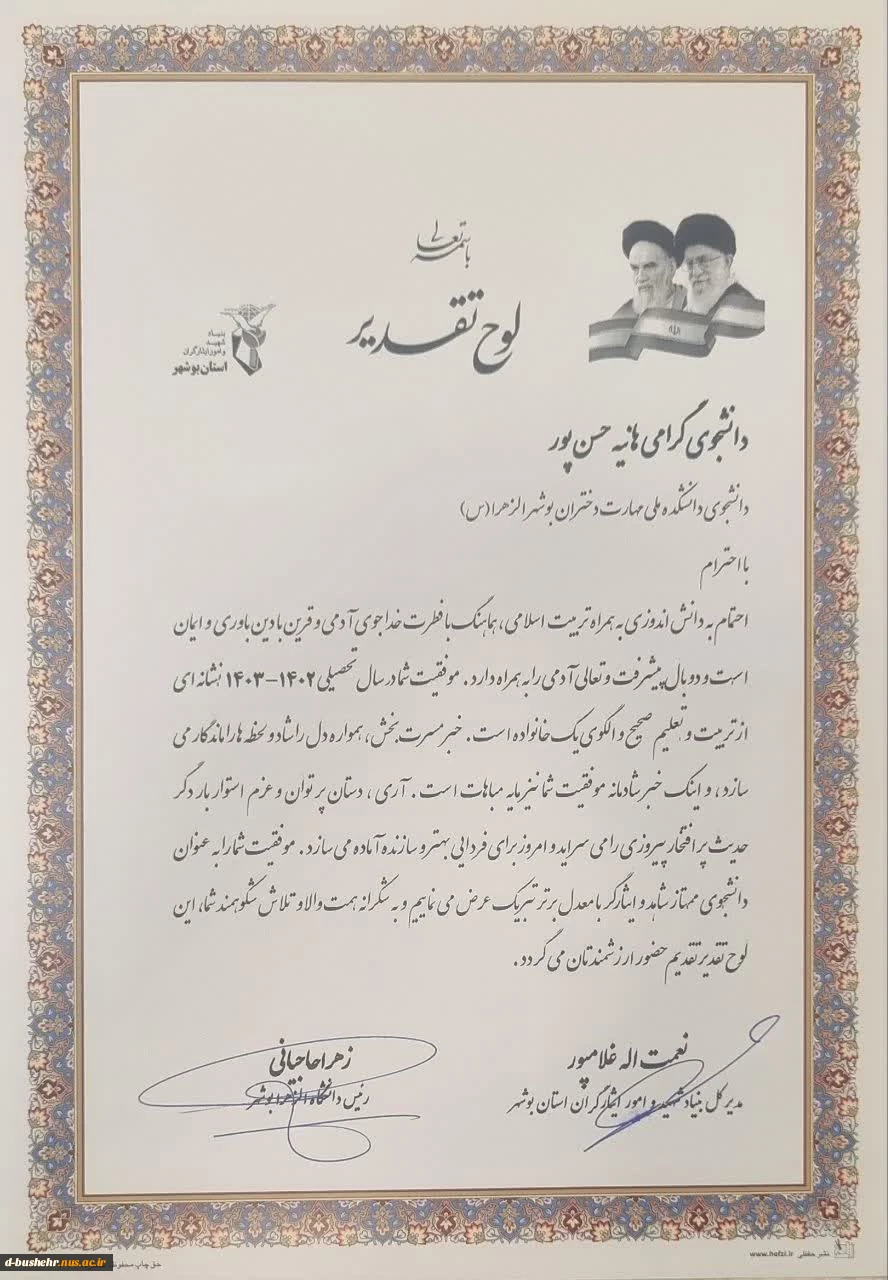 باسمه تعالی
لوح تقدیر
بنیاد
شهید
و امور ایثارگران
استان بوشهر
دانشجوی گرامی هانیه حسن پور
دانشجوی دانشکده ملی مهارت دختران بوشهر الزهرا (س)
با احترام
اهتمام به دانش اندوزی به همراه تربیت اسلامی، هماهنگ با فطرت خداجوی آدمی و قرین با دین باوری و ایمان
است و دو بال پیشرفت و تعالی آدمی را به همراه دارد. موفقیت شما در سال تحصیلی ۱۴۰۲-۱۴۰۳ نشانه ای
از تربیت و تعلیم صحیح و الگوی یک خانواده است. خبر مسرت بخش، همواره دل را شاد و لحظه ها را ماندگار می
سازد، و اینک خبر شادمانه موفقیت شما نیز مایه مباهات است. آری، دستان پر توان و عزم استوار بار دگر
حدیث پر افتخار پیروزی را می سراید و امروز برای فردایی بهتر و سازنده آماده می سازد. موفقیت شما را به عنوان
دانشجوی ممتاز شاهد و ایثارگر با معدل برتر تبریک عرض می نماییم و به شکرانه همت والا و تلاش شکوهمند شما، این
لوح تقدیر تقدیم حضور ارزشمندتان می گردد.
نعمت اله غلامپور
مدیر کل بنیاد شهید و امور ایثارگران استان بوشهر
زهرا حاجیانی
رئیس دانشگاه الزهرا بوشهر
نشر حفظی www.hefzi.ir
حق چاپ محفوظ
d-bushehr.nus.ac.ir